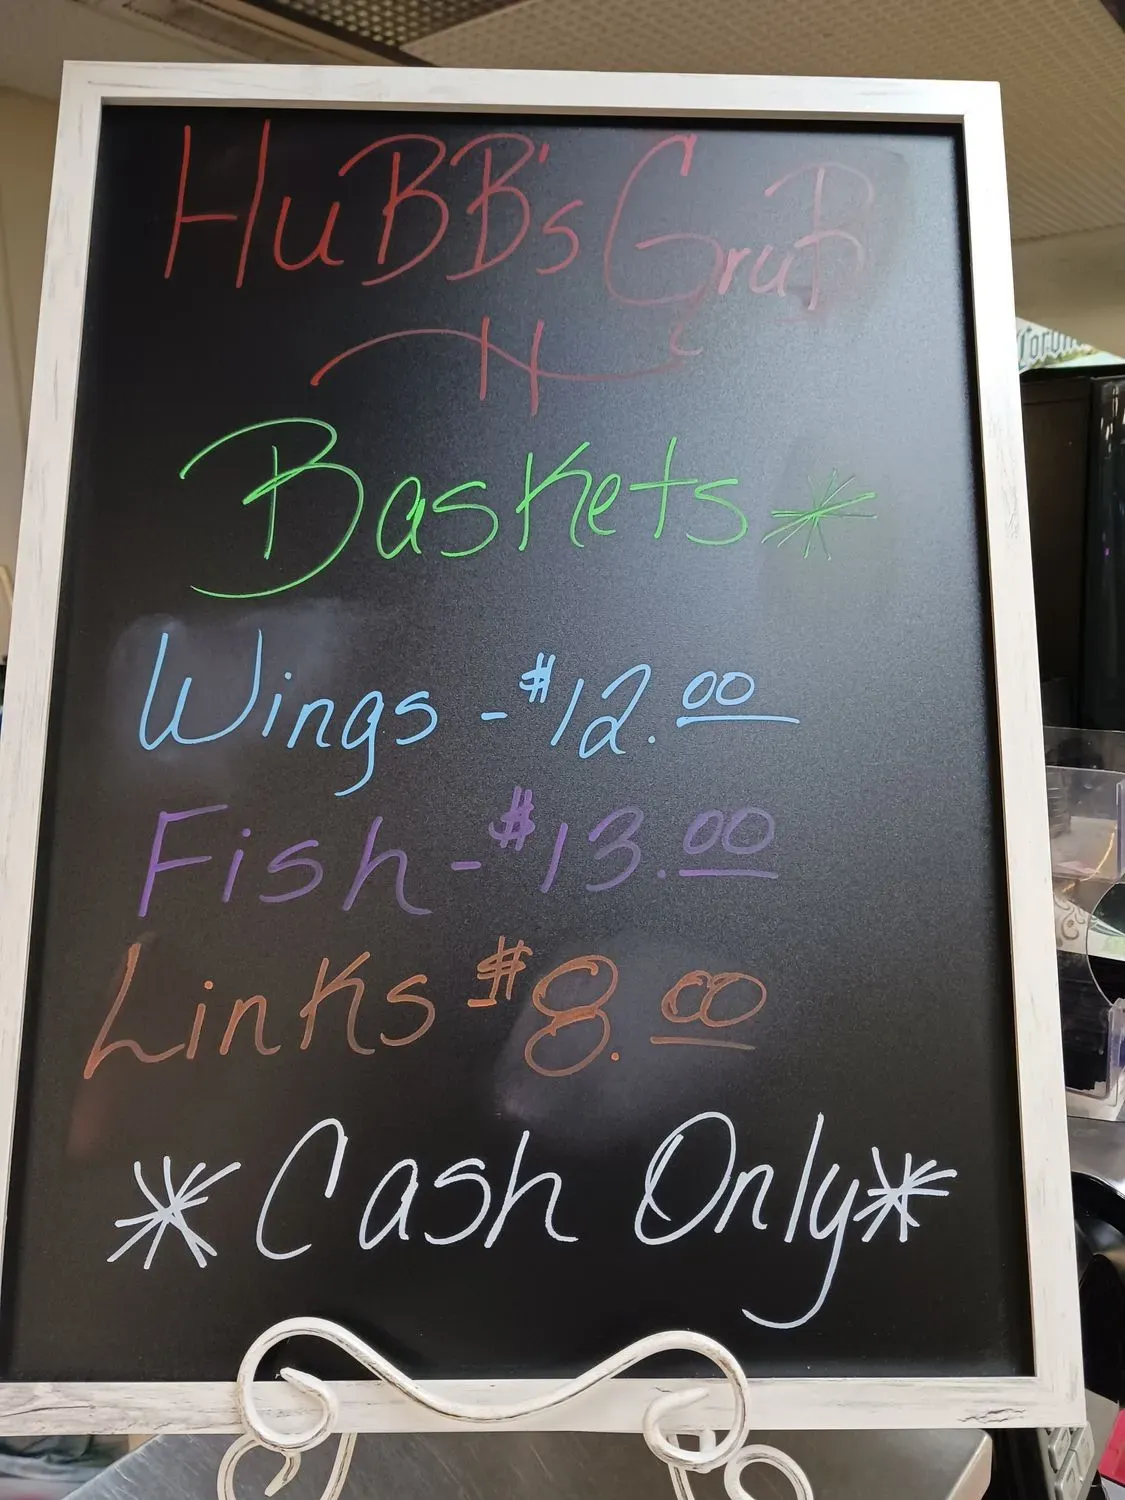 HuBB's GruB
Baskets*
Wings - $12.00
Fish - $13.00
Links $8.00
*Cash Only*
Corona